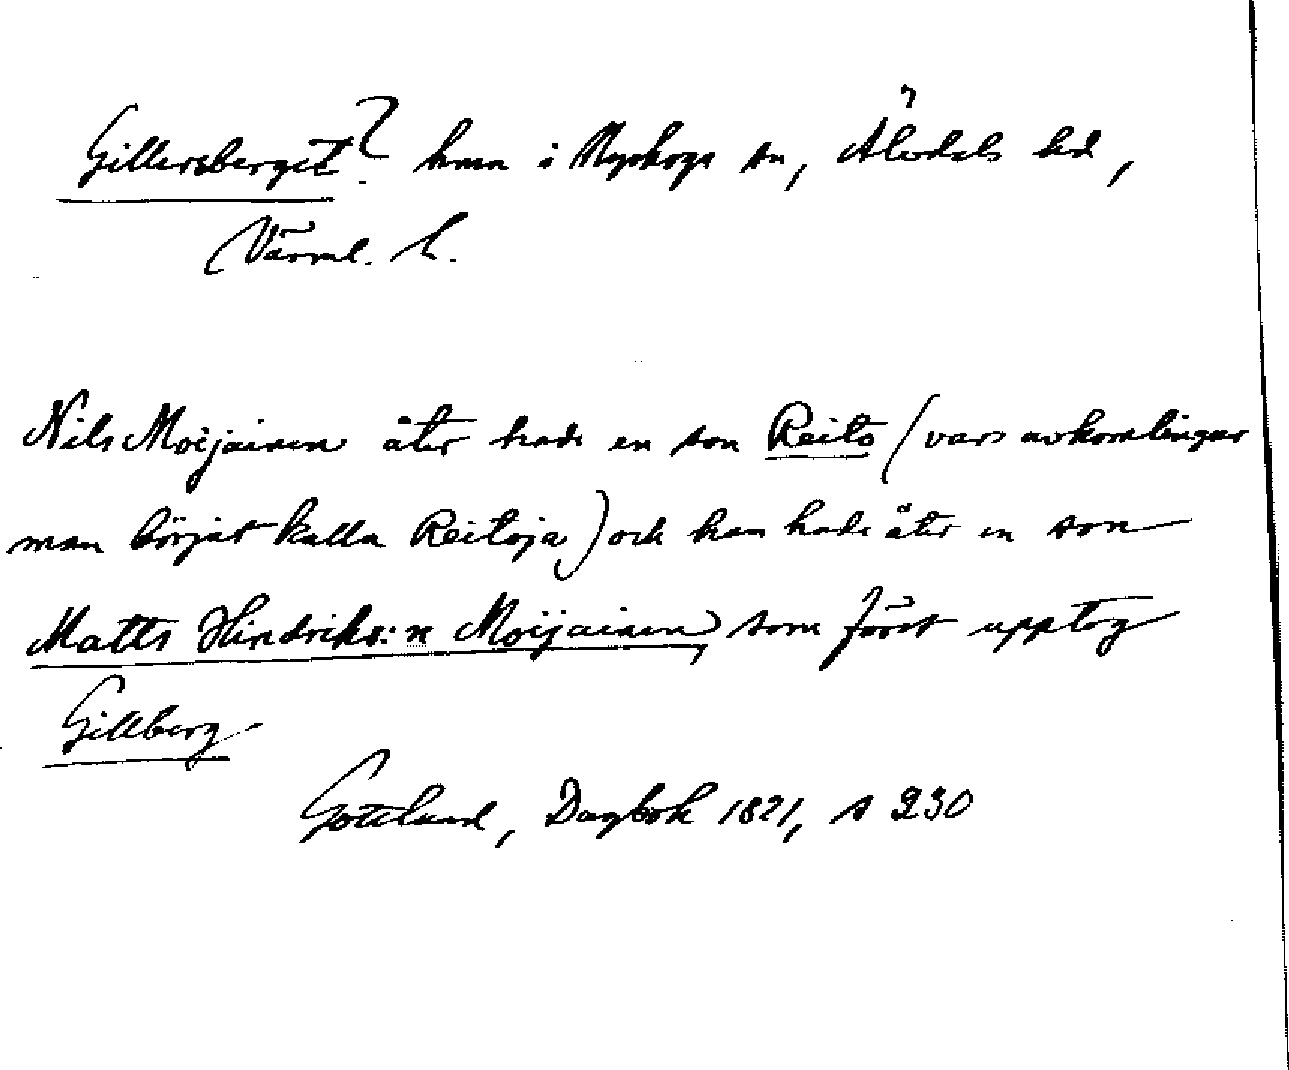 Gillersberget? hmn i Nyskoga sn, Älvdals hd,
Värml. l.
Nils Moijainen åter hade en son Reito (vars avkomlingar
man börjat kalla Reitoja) och han hade åter en son
Matts Hindriks:n Moijainen, som först upptog
Gillberg
Gottlund, Dagbok 1821, s 230